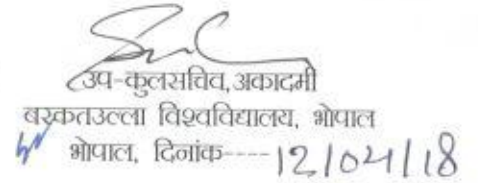 उप-कुलसचिव, अकादमी
बरकतउल्ला विश्वविद्यालय, भोपाल
भोपाल, दिनांक---- 12/04/18